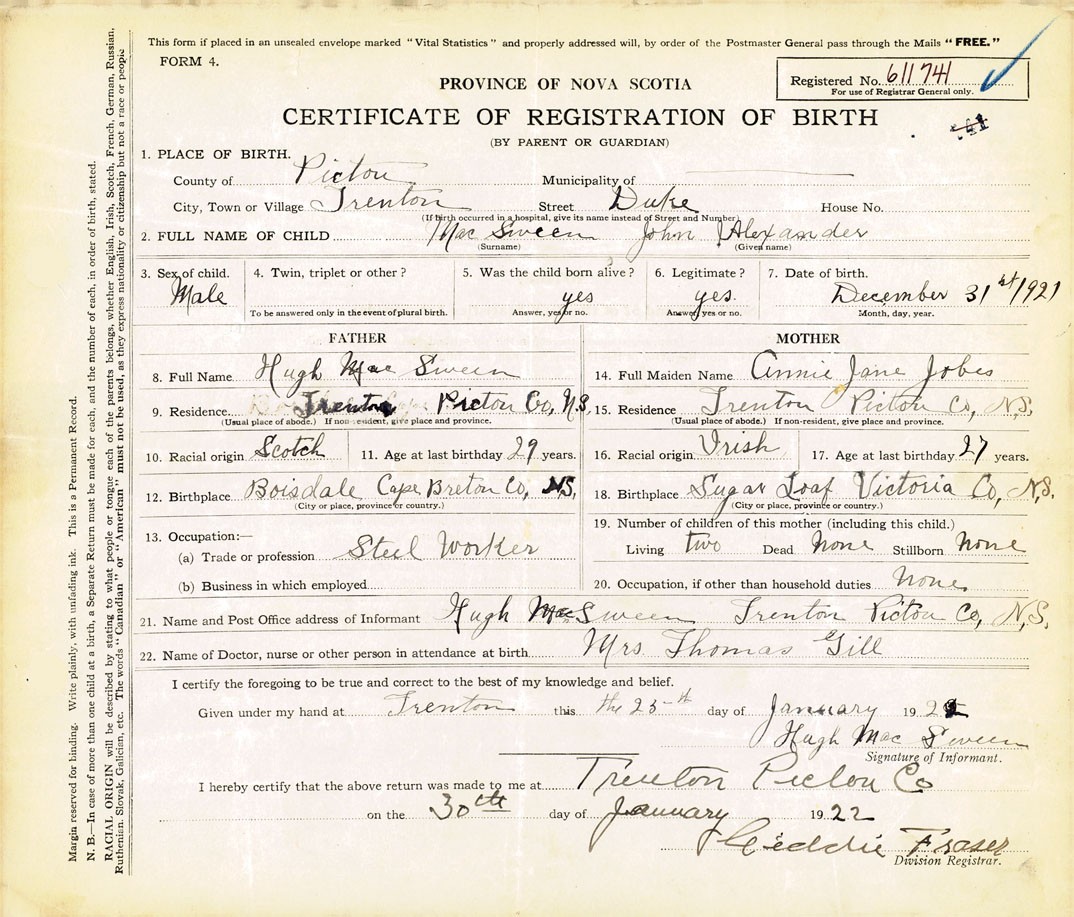 This form if placed in an unsealed envelope marked "Vital Statistics" and properly addressed will, by order of the Postmaster General pass through the Mails "FREE."
FORM 4.
Registered No. 611741
For use of Registrar General only.
PROVINCE OF NOVA SCOTIA
CERTIFICATE OF REGISTRATION OF BIRTH
(BY PARENT OR GUARDIAN)
1. PLACE OF BIRTH.
County of Pictou Municipality of
City, Town or Village Trenton Street Duke House No.
(If birth occurred in a hospital, give its name instead of Street and Number)
2. FULL NAME OF CHILD Mac Sween John Alexander
(Surname) (Given name)
3. Sex of child. 4. Twin, triplet or other? 5. Was the child born alive? 6. Legitimate? 7. Date of birth.
Male yes yes. December 31st/1921
To be answered only in the event of plural birth. Answer, yes or no. Answer, yes or no. Month, day, year.
FATHER
8. Full Name Hugh Mac Sween
9. Residence Trenton Pictou Co, N.S,
(Usual place of abode.) If non-resident, give place and province.
10. Racial origin Scotch 11. Age at last birthday 29 years.
12. Birthplace Boisdale Cape Breton Co, N.S.
(City or place, province or country.)
13. Occupation:—
(a) Trade or profession Steel Worker
(b) Business in which employed
MOTHER
14. Full Maiden Name Annie Jane Jobes
15. Residence Trenton Pictou Co, N.S,
(Usual place of abode.) If non-resident, give place and province.
16. Racial origin Irish 17. Age at last birthday 27 years.
18. Birthplace Sugar Loaf Victoria Co, N.S.
(City or place, province or country.)
19. Number of children of this mother (including this child.)
Living two Dead None Stillborn None
20. Occupation, if other than household duties None
21. Name and Post Office address of Informant Hugh MacSween Trenton Pictou Co, N.S.
22. Name of Doctor, nurse or other person in attendance at birth Mrs. Thomas Gill
I certify the foregoing to be true and correct to the best of my knowledge and belief.
Given under my hand at Trenton this the 25th day of January 1922
Hugh Mac Sween
Signature of Informant.
I hereby certify that the above return was made to me at Trenton Pictou Co
on the 30th day of January 1922
Fraser
Division Registrar.
Margin reserved for binding. Write plainly, with unfading ink. This is a Permanent Record.
N. B.—In case of more than one child at a birth, a Separate Return must be made for each, and the number of each, in order of birth, stated.
RACIAL ORIGIN will be described by stating to what people or tongue each of the parents belongs, whether English, Irish, Scotch, French, German, Russian,
Ruthenian, Slovak, Galician, etc. The words "Canadian" or "American" must not be used, as they express nationality or citizenship but not a race or people